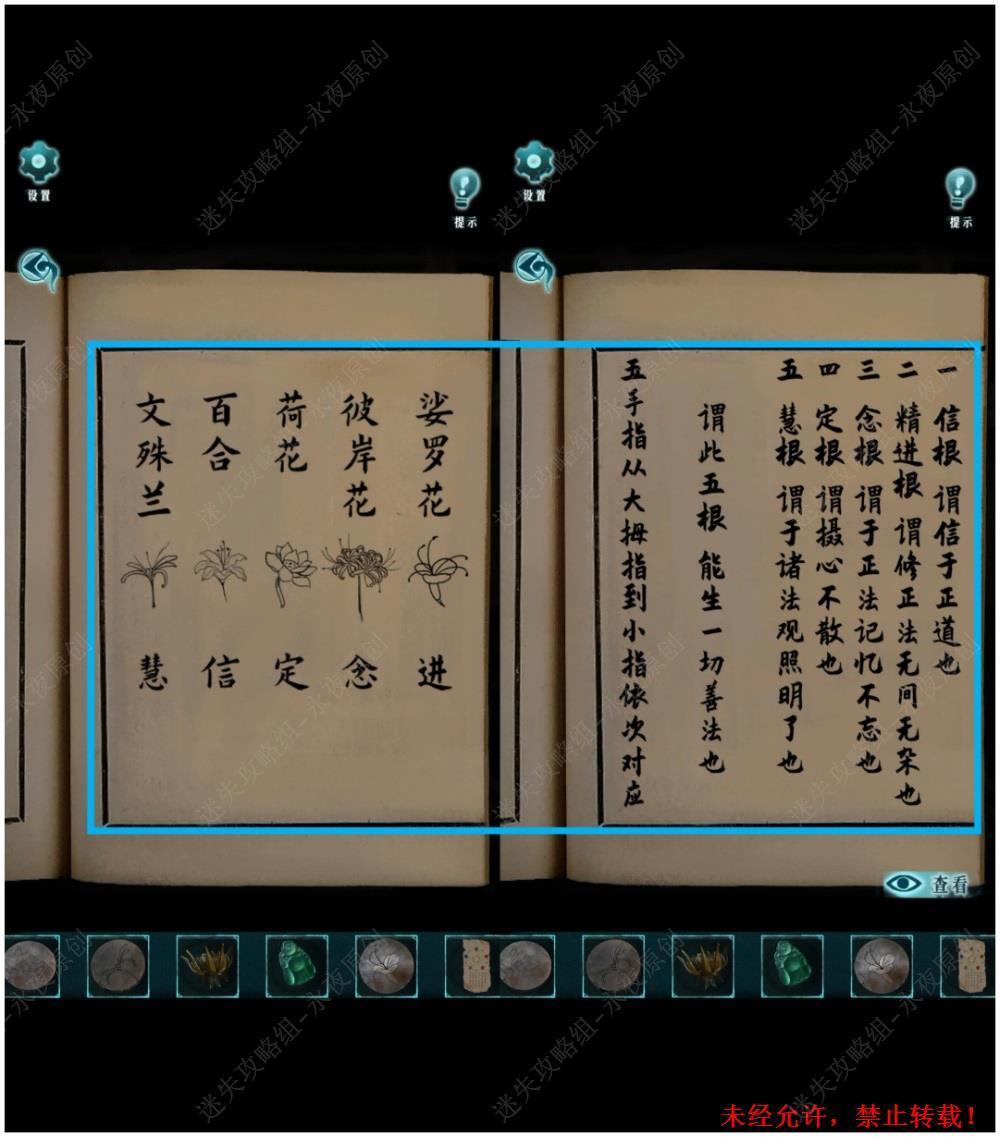 设置
提示
娑罗花 进
彼岸花 念
荷花 定
百合 信
文殊兰 慧
设置
提示
一 信根 谓信于正道也
二 精进根 谓修正法无间无杂也
三 念根 谓于正法记忆不忘也
四 定根 谓摄心不散也
五 慧根 谓于诸法观照明了也
谓此五根 能生一切善法也
五手指从大拇指到小指依次对应
查看
迷失攻略组-永夜原创
未经允许，禁止转载！